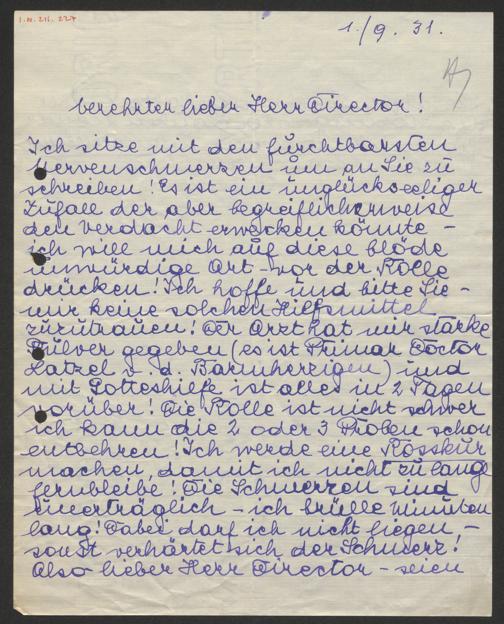 1. N. 211. 227
1./9. 31.
verehrter lieber Herr Director!
Ich sitze mit den furchtbarsten
Nervenschmerzen um an Sie zu
schreiben! Es ist ein unglückseeliger
Zufall der aber begreiflicherweise
den Verdacht erwecken könnte –
ich will mich auf diese blöde
unwürdige Art – vor der Rolle
drücken! Ich hoffe und bitte Sie –
mir keine solchen Hilfsmittel
zuzutrauen! Der Arzt hat mir starke
Pulver gegeben (es ist Primar Doctor
Hatzel v. d. Barmherzigen) und
mit Gotteshilfe ist alles in 2 Tagen
vorüber! Die Rolle ist nicht schwer
ich kann die 2 oder 3 Proben schon
entbehren! Ich werde eine Rosskur
machen, damit ich nicht zu lange
fernbleibe! Die Schmerzen sind
unerträglich – ich brülle minuten
lang! Dabei darf ich nicht liegen, –
sonst verhärtet sich der Schmerz!
Also lieber Herr Director – seien